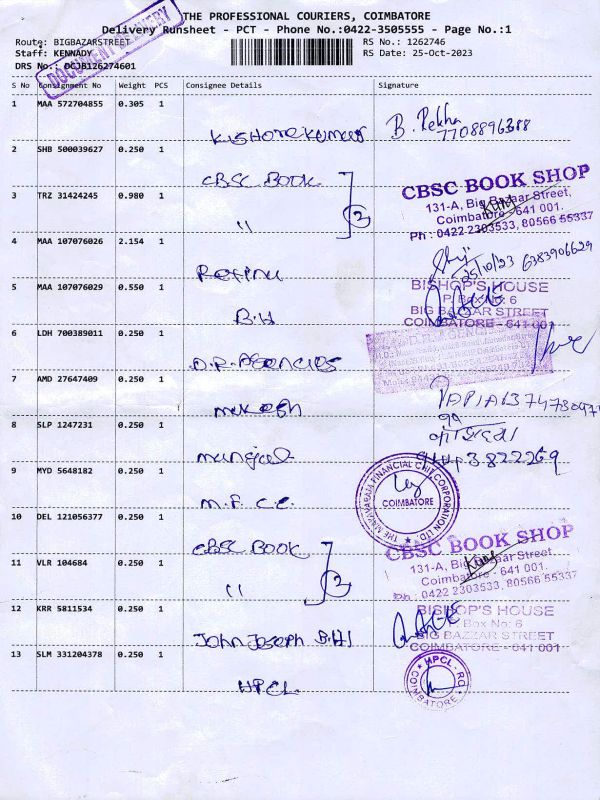 THE PROFESSIONAL COURIERS, COIMBATORE
Delivery Runsheet - PCT - Phone No.:0422-3505555 - Page No.:1
Route: BIGBAZARSTREET
RS No.: 1262746
Staff: KENNADY
RS Date: 25-Oct-2023
DRS No.: DCJB126274601
DOCUMENT DELIVERY
S No Consignment No Weight PCS Consignee Details Signature
1 MAA 572704855 0.305 1
Kishorekumar B. Rekha
7708896388
2 SHB 500039627 0.250 1
CBSC BOOK
CBSC BOOK SHOP
131-A, Big Bazaar Street,
Coimbatore - 641 001.
Ph : 0422 2303533, 80566 55337
3 TRZ 31424245 0.980 1
" 2
4 MAA 107076026 2.154 1
25/10/23 6383906629
5 MAA 107076029 0.550 1
B.H
BISHOP'S HOUSE
P. Box No: 6
BIG BAZZAR STREET
COIMBATORE - 641 001
6 LDH 700389011 0.250 1
D.R. Agencies
7 AMD 27647409 0.250 1
mukesh
8 SLP 1247231 0.250 1
9 MYD 5648182 0.250 1
M.F.C.C.
THE MAHARAJA FINANCIAL CHIT CORPORATION LTD.
COIMBATORE
10 DEL 121056377 0.250 1
CBSC BOOK
CBSC BOOK SHOP
131-A, Big Bazaar Street,
Coimbatore - 641 001.
Ph : 0422 2303533, 80566 55337
11 VLR 104684 0.250 1
" 2
12 KRR 5811534 0.250 1
John Joseph B.H
BISHOP'S HOUSE
P. Box No: 6
BIG BAZZAR STREET
COIMBATORE - 641 001
13 SLM 331204378 0.250 1
HPCL
HPCL - RO
COIMBATORE